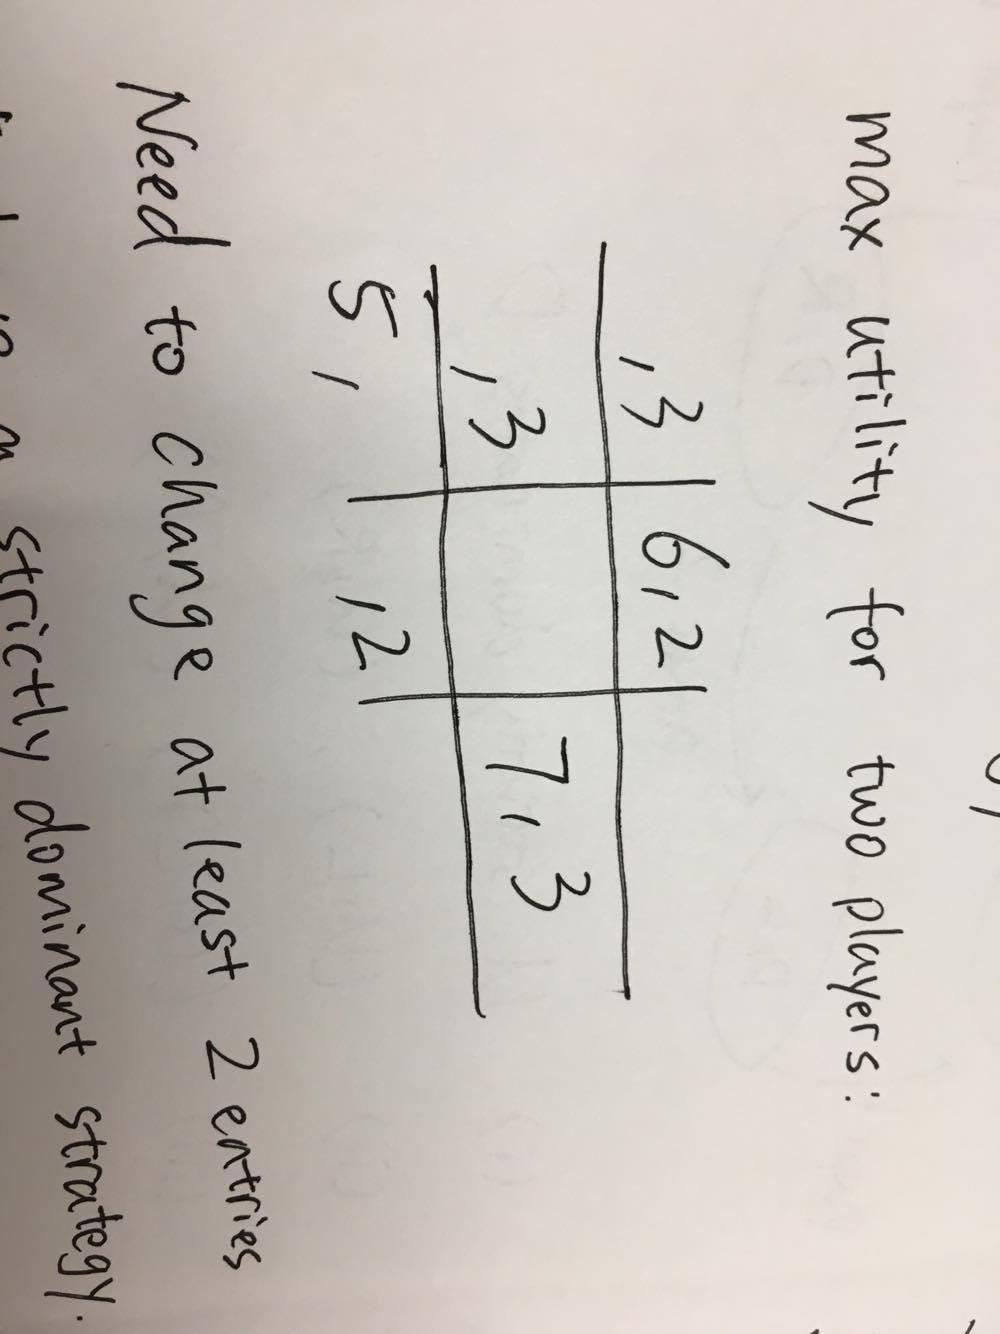 max utility for two players:
,3 6,2
,3 7,3
5, ,2
Need to change at least 2 entries
a strictly dominant strategy.